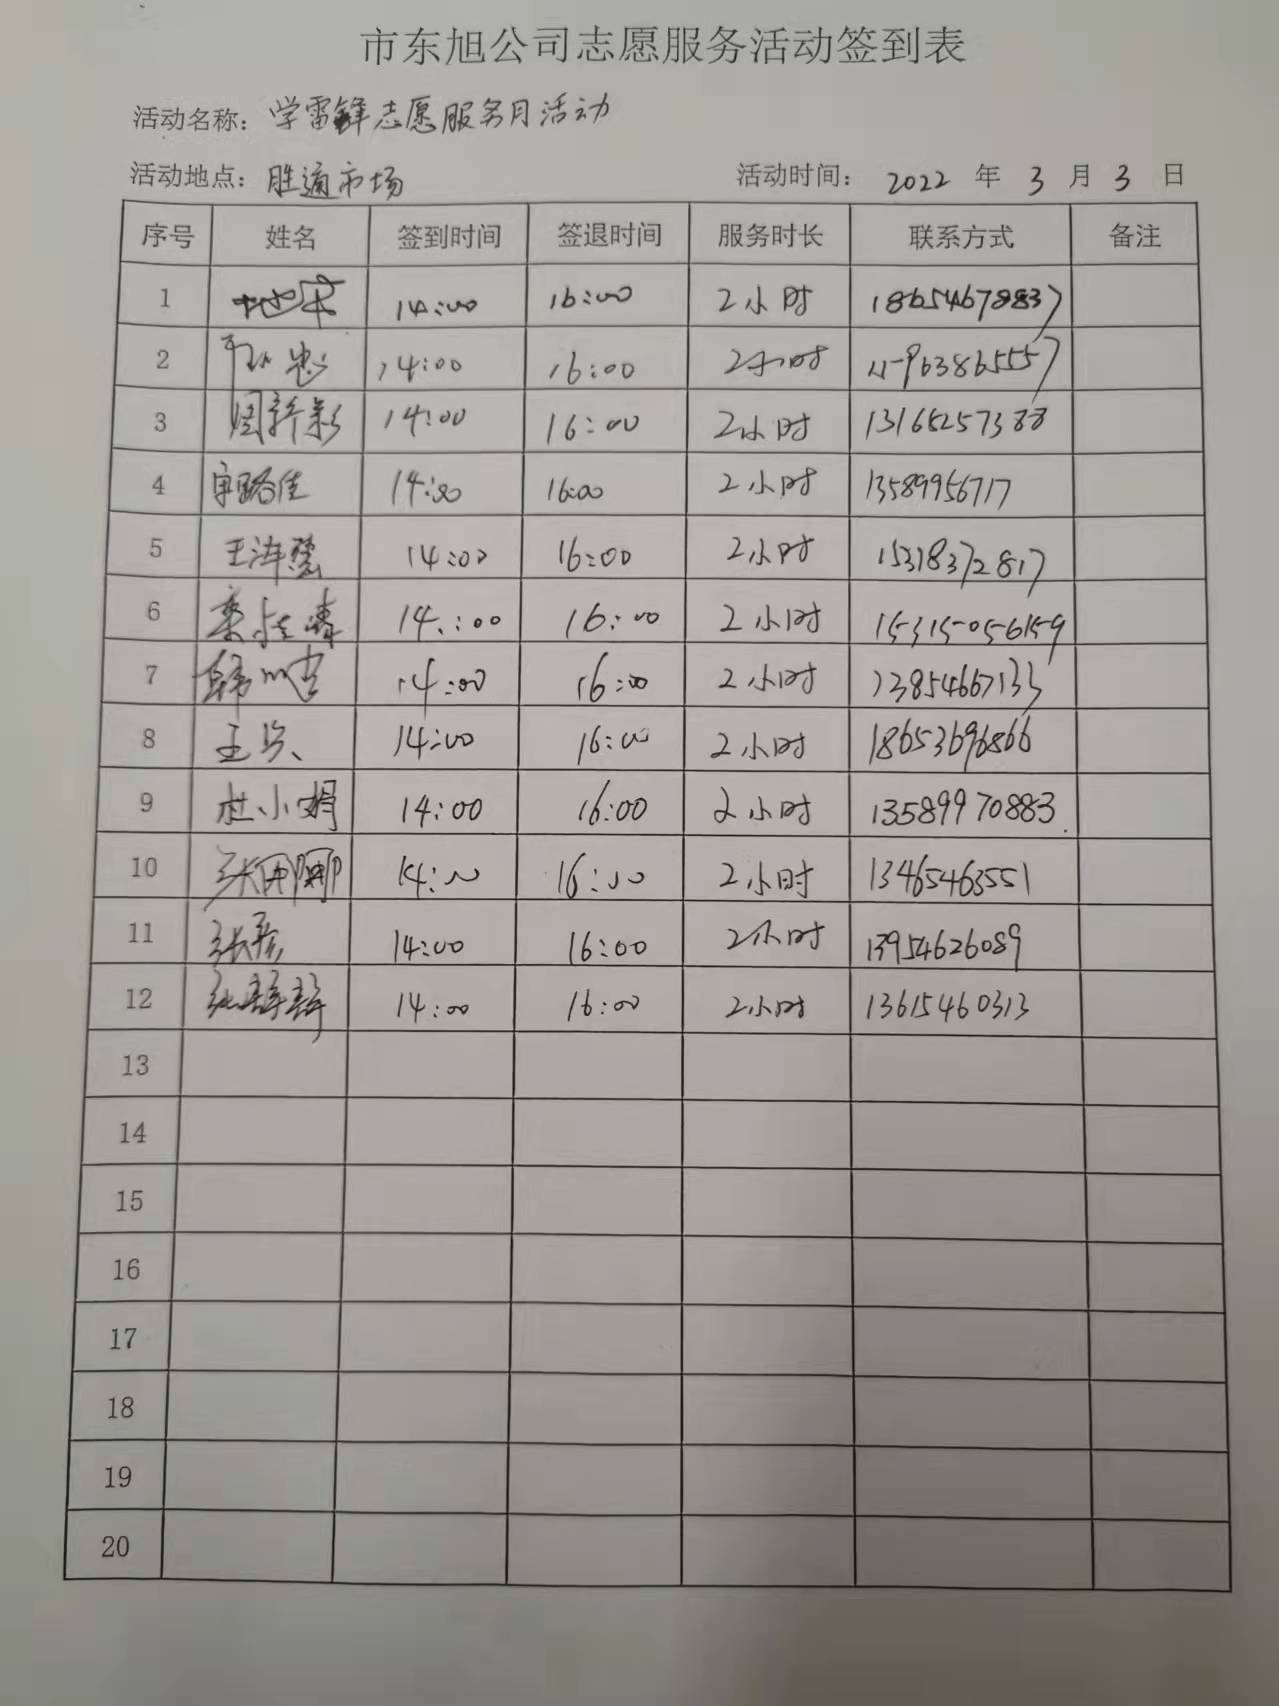 市东旭公司志愿服务活动签到表
活动名称：学雷锋志愿服务月活动
活动地点：胜通市场 活动时间： 2022 年 3 月 3 日
序号 姓名 签到时间 签退时间 服务时长 联系方式 备注
1 14:00 16:00 2小时 18654678837
2 14:00 16:00 2小时
3 周新彩 14:00 16:00 2小时 13165257388
4 14:00 16:00 2小时 13589956717
5 14:00 16:00 2小时 15318372817
6 14:00 16:00 2小时 15315056159
7 14:00 16:00 2小时 13854667133
8 14:00 16:00 2小时 18653696866
9 杜小娟 14:00 16:00 2小时 13589970883
10 张娜娜 14:00 16:00 2小时 13465463551
11 14:00 16:00 2小时 13954626089
12 张静静 14:00 16:00 2小时 13615460313
13
14
15
16
17
18
19
20